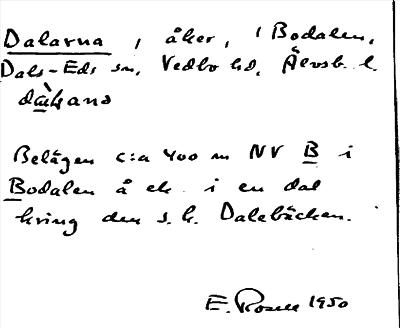 Dalarna, åker, i Bodalen,
Dals-Eds sn, Vedbo hd, Älvsb. l.
Belägen c:a 400 m NV B i
Bodalen å ek. i en dal
kring den s.k. Dalebäcken.
E. Rosell 1950